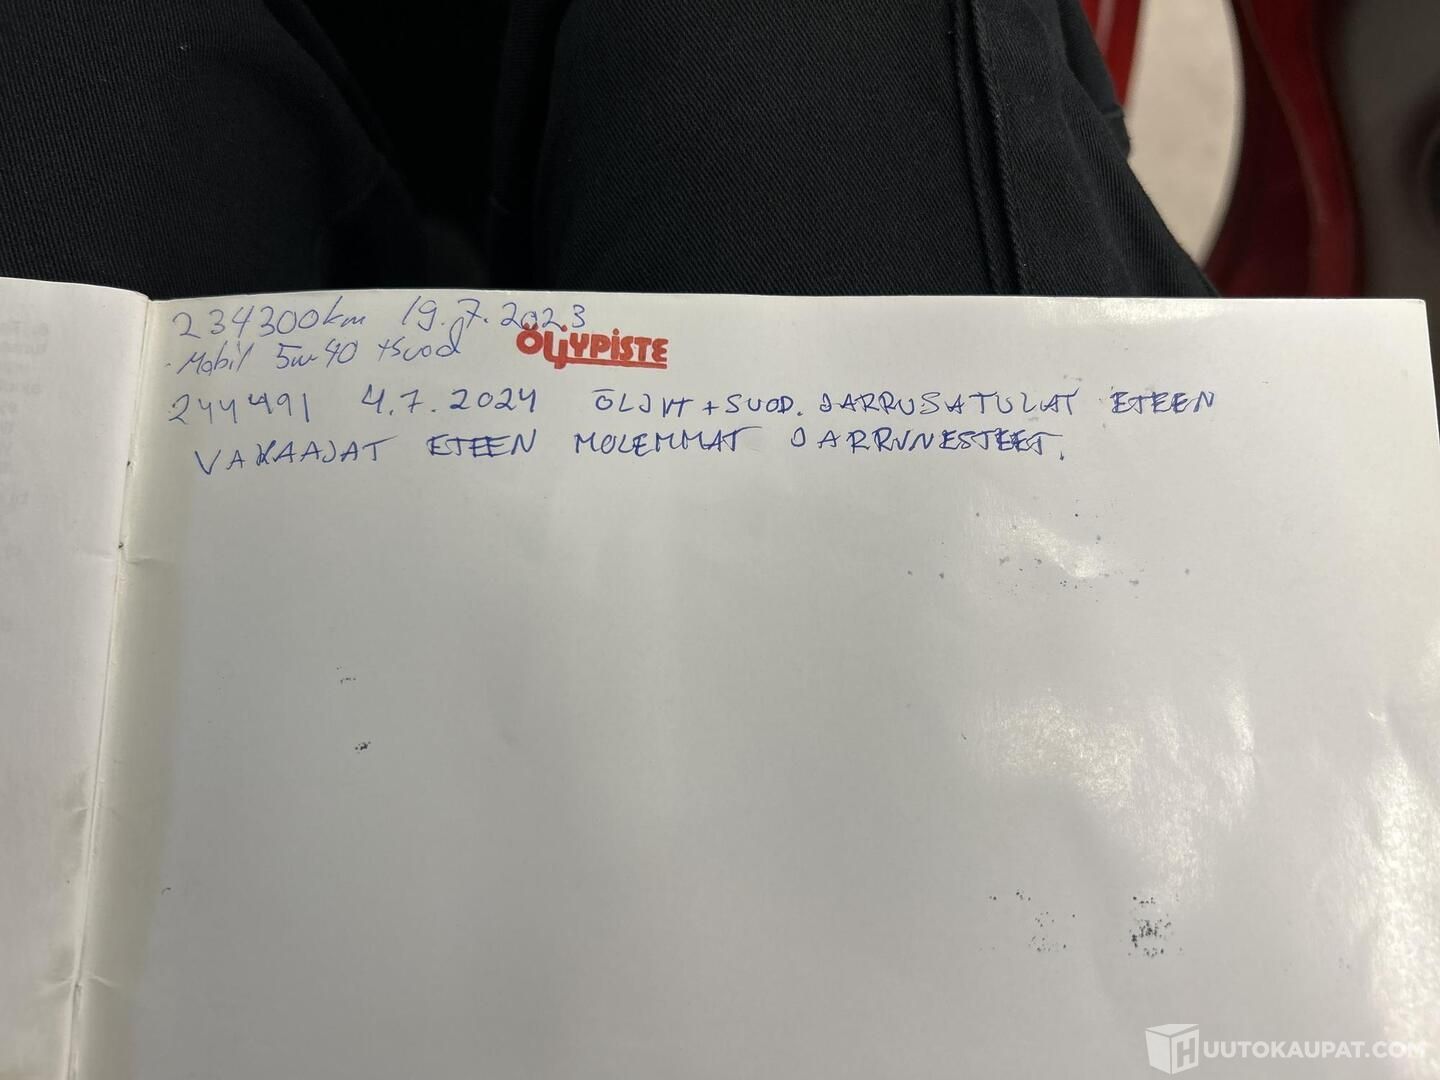 234300km 19.7.2023
Mobil 5w40 +suod ÖLJYPISTE
244491 4.7.2024 ÖLJYT + SUOD. JARRUSATULAT ETEEN
VAKAAJAT ETEEN MOLEMMAT JARRUNESTEET.
HUUTOKAUPAT.COM